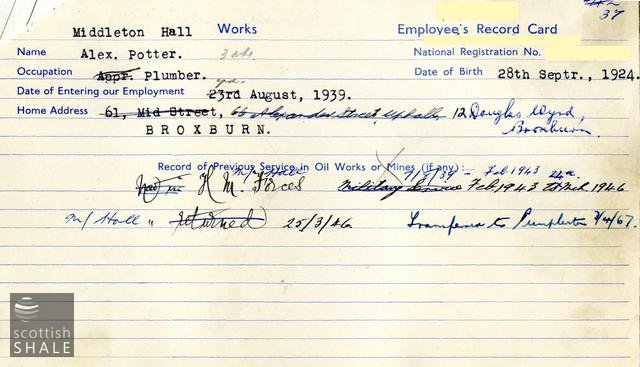 37
Middleton Hall Works Employee's Record Card
Name Alex. Potter. National Registration No.
Occupation Appr. Plumber. Date of Birth 28th Septr., 1924.
Date of Entering our Employment 23rd August, 1939.
Home Address 61, Mid Street, 66 Alexander Street Uphall, 12 Douglas Wynd,
BROXBURN. Broxburn
Record of Previous Service in Oil Works or Mines (if any):
M/Hall 7/8/39 - Feb 1943
Now in H.M. Forces Military Service Feb 1943 to Mch 1946
M/Hall " returned 25/3/46 Transferred to Pumpherston 7/4/67.
scottish
SHALE